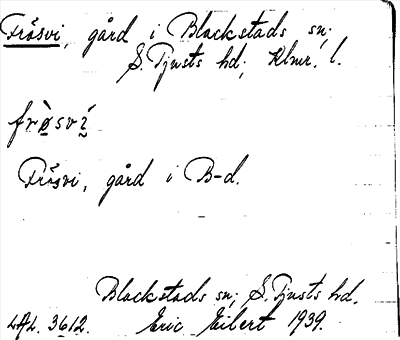 Frösvi, gård i Blackstads sn;
S. Tjusts hd; Klmr. l.
frø̀svi
Frösvi, gård i B-d.
Blackstads sn; S. Tjusts hd.
LAL. 3612. Eric Eilert 1939.